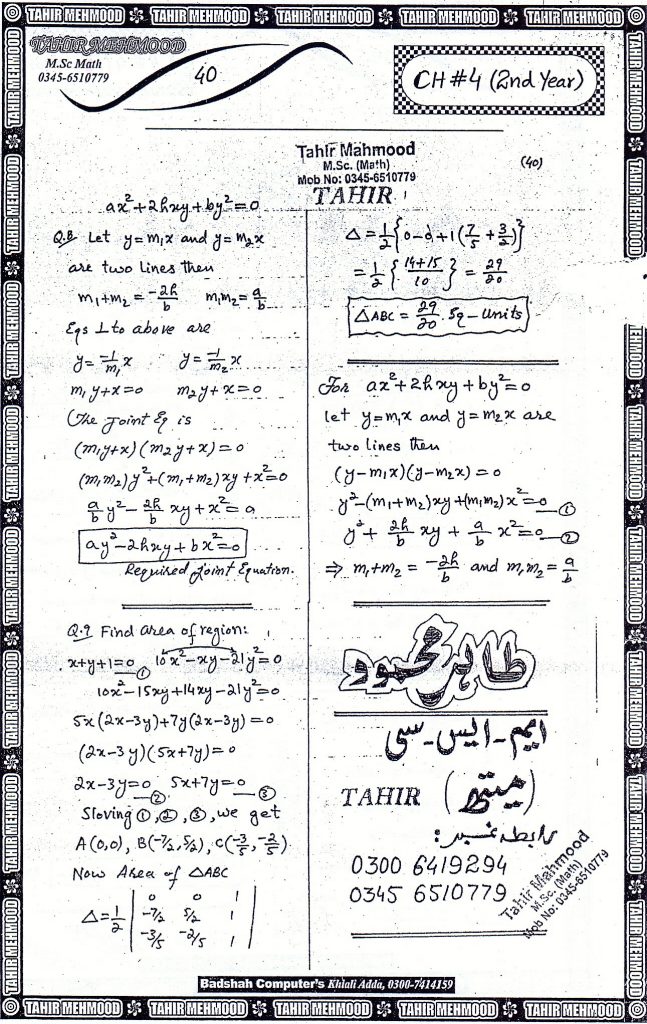 TAHIR MEHMOOD TAHIR MEHMOOD TAHIR MEHMOOD TAHIR MEHMOOD TAHIR MEHMOOD
TAHIR MEHMOOD
M.Sc Math
0345-6510779
40
CH #4 (2nd Year)
Tahir Mahmood
M.Sc. (Math)
Mob No: 0345-6510779
TAHIR
(40)
ax²+2hxy+by²=0
Q.8 Let y=m₁x and y=m₂x
are two lines then
m₁+m₂ = -2h/b m₁m₂ = a/b
Eqs ⊥ to above are
y = -1/m₁ x y = -1/m₂ x
m₁y+x=0 m₂y+x=0
The Joint Eq is
(m₁y+x)(m₂y+x)=0
(m₁m₂)y²+(m₁+m₂)xy+x²=0
a/b y² - 2h/b xy + x² = 0
ay²-2hxy+bx²=0
Required Joint Equation.
Q.9 Find Area of region:
x+y+1=0 ① 10x²-xy-21y²=0
10x²-15xy+14xy-21y²=0
5x(2x-3y)+7y(2x-3y)=0
(2x-3y)(5x+7y)=0
2x-3y=0 ② 5x+7y=0 ③
Sloving ①,②,③, we get
A(0,0), B(-7/2, 5/2), C(-3/5, -2/5)
Now Area of △ABC
△ = 1/2 | 0 0 1
-7/2 5/2 1
-3/5 -2/5 1 |
△ = 1/2 {0-0+1(7/5 + 3/2)}
= 1/2 {14+15/10} = 29/20
△ABC = 29/20 Sq-Units
For ax²+2hxy+by²=0
let y=m₁x and y=m₂x are
two lines then
(y-m₁x)(y-m₂x)=0
y²-(m₁+m₂)xy+(m₁m₂)x²=0 ①
y² + 2h/b xy + a/b x² = 0 ②
⇒ m₁+m₂ = -2h/b and m₁m₂ = a/b
طاہر محمود
ایم - ایس - سی
TAHIR (میتھ)
رابطہ نمبر:
0300 6419294
0345 6510779
Tahir Mahmood
M.Sc. (Math)
Mob No: 0345-6510779
Badshah Computer's Khiali Adda, 0300-7414159
TAHIR MEHMOOD TAHIR MEHMOOD TAHIR MEHMOOD TAHIR MEHMOOD TAHIR MEHMOOD